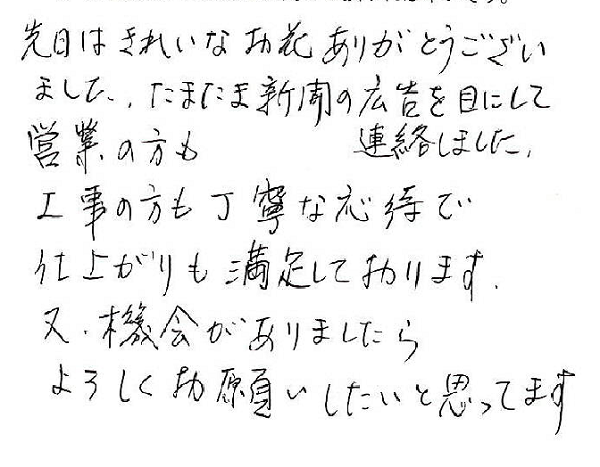 先日はきれいなお花ありがとうござい
ました、たまたま新聞の広告を目にして
営業の方も 連絡しました、
工事の方も丁寧な応待で
仕上がりも満足しております、
又、機会がありましたら
よろしくお願いしたいと思ってます